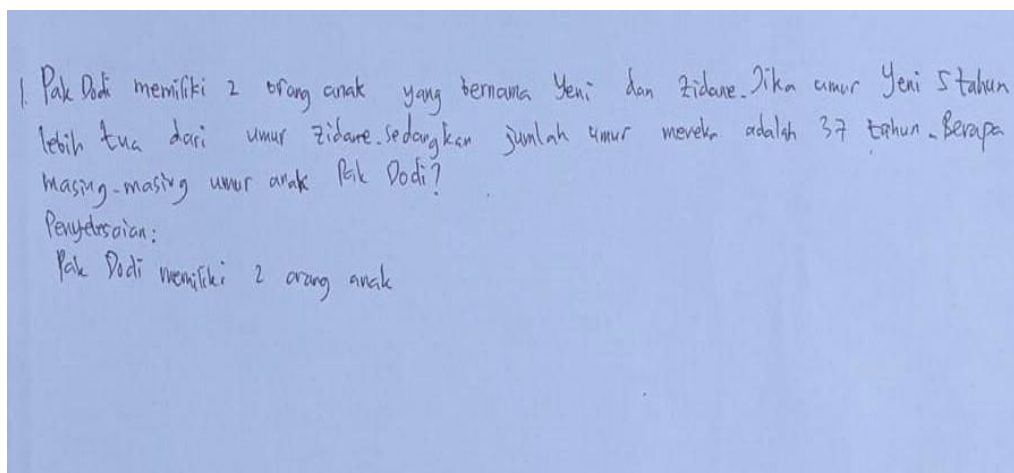 1. Pak Dodi memiliki 2 orang anak yang bernama Yeni dan Zidane. Jika umur Yeni 5 tahun
lebih tua dari umur Zidane. Sedangkan jumlah umur mereka adalah 37 tahun. Berapa
masing-masing umur anak Pak Dodi?
Penyelesaian:
Pak Dodi memiliki 2 orang anak